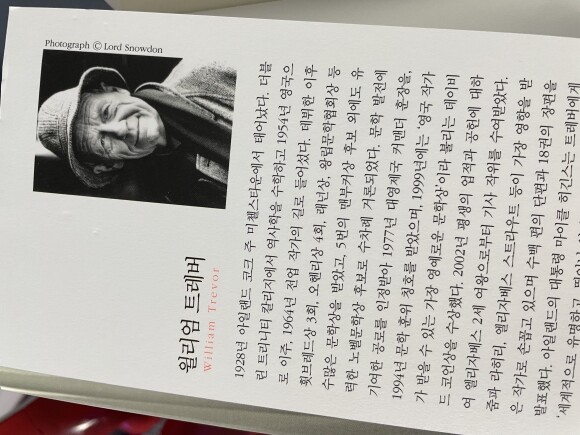 Photograph © Lord Snowdon
윌리엄 트레버
William Trevor
1928년 아일랜드 코크 주 미첼스타운에서 태어났다. 더블
린 트리니티 칼리지에서 역사학을 수학하고 1954년 영국으
로 이주, 1964년 전업 작가의 길로 들어섰다. 데뷔한 이후
휫브레드상 3회, 오헨리상 4회, 래넌상, 왕립문학협회상 등
수많은 문학상을 받았고, 5번의 맨부커상 후보 외에도 유
력한 노벨문학상 후보로 수차례 거론되었다. 문학 발전에
기여한 공로를 인정받아 1977년 대영제국 커맨더 훈장을,
1994년 문학 훈위 칭호를 받았으며, 1999년에는 ‘영국 작가
가 받을 수 있는 가장 영예로운 문학상’이라 불리는 데이비
드 코언상을 수상했다. 2002년 평생의 업적과 공헌에 대하
여 엘리자베스 2세 여왕으로부터 기사 작위를 수여받았다.
줌파 라히리, 엘리자베스 스트라우트 등이 가장 영향을 받
은 작가로 손꼽고 있으며 수백 편의 단편과 18권의 장편을
발표했다. 아일랜드의 대통령 마이클 히긴스는 트레버에게
‘세계적으로 유명하고